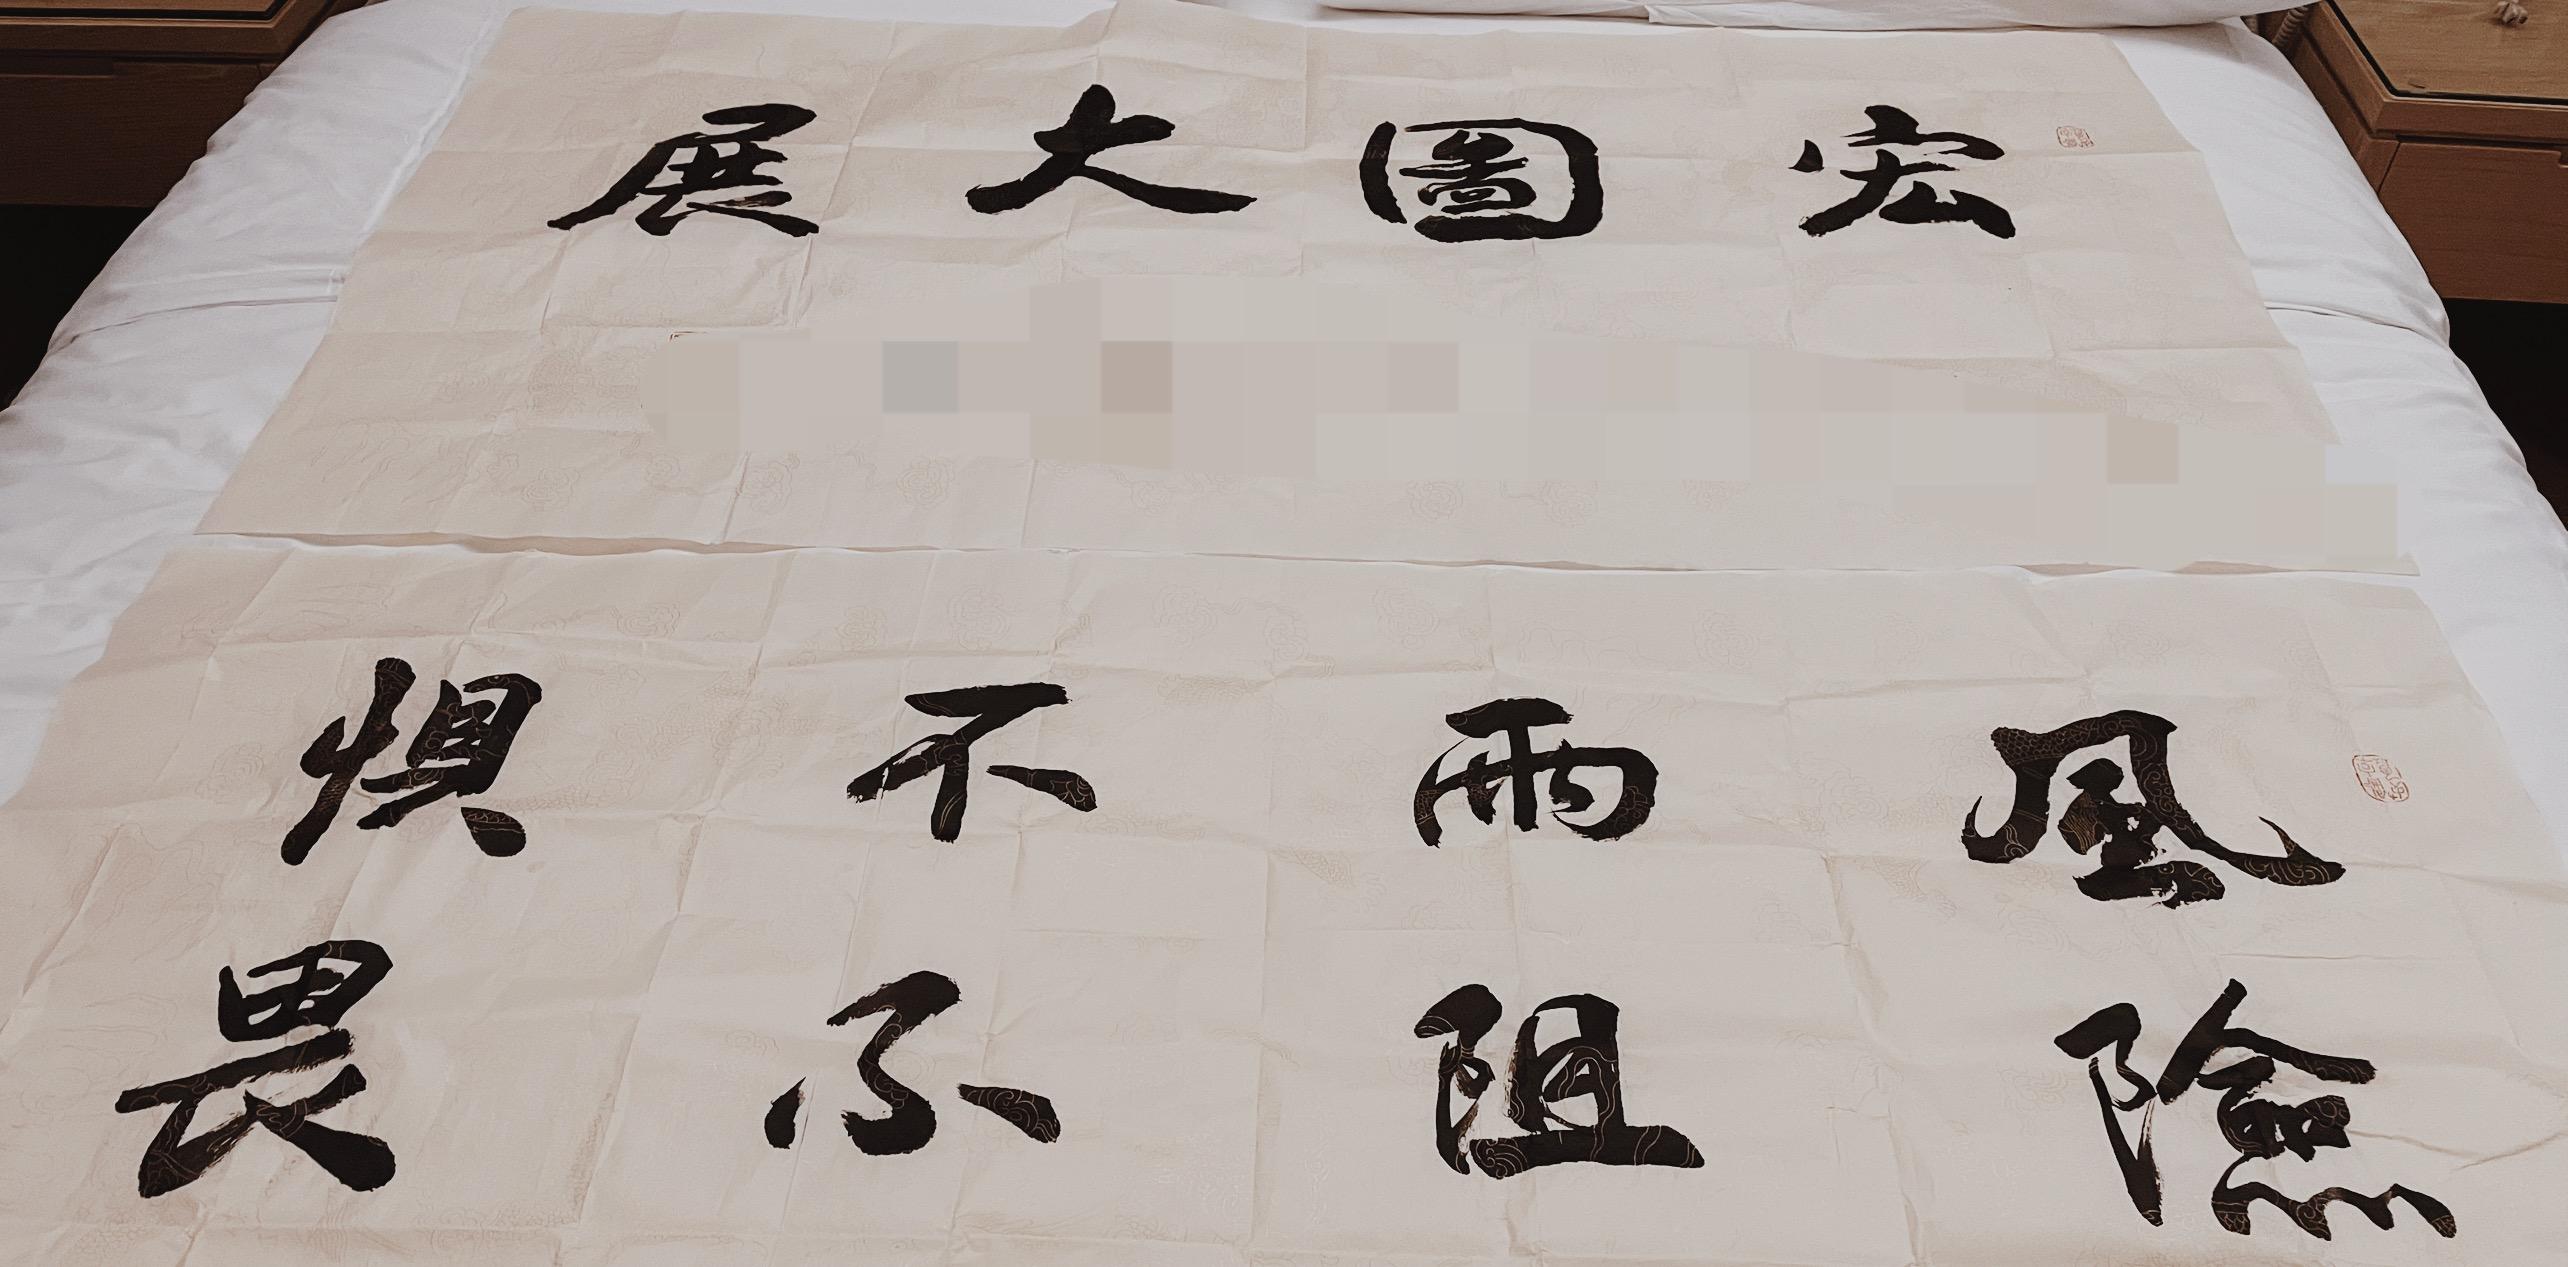 宏圖大展
風雨不惧
險阻不畏